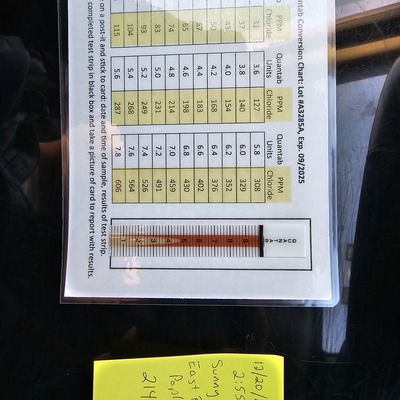 Conversion Chart: Lot #A3285A, Exp. 09/2025
PPM Quantab PPM Quantab PPM
Chloride Units Chloride Units Chloride
3.6 127 5.8 308
37 3.8 140 6.0 329
43 4.0 154 6.2 352
50 4.2 168 6.4 376
57 4.4 183 6.6 402
65 4.6 198 6.8 430
74 4.8 214 7.0 459
83 5.0 231 7.2 491
93 5.2 249 7.4 526
104 5.4 268 7.6 564
115 5.6 287 7.8 606
on a post-it and stick to card: date and time of sample, results of test strip.
completed test strip in black box and take a picture of card to report with results.
QUANTAB
9 8 7 6 5 4 3 2 1
12/20/
2:55
Sunny
East
214